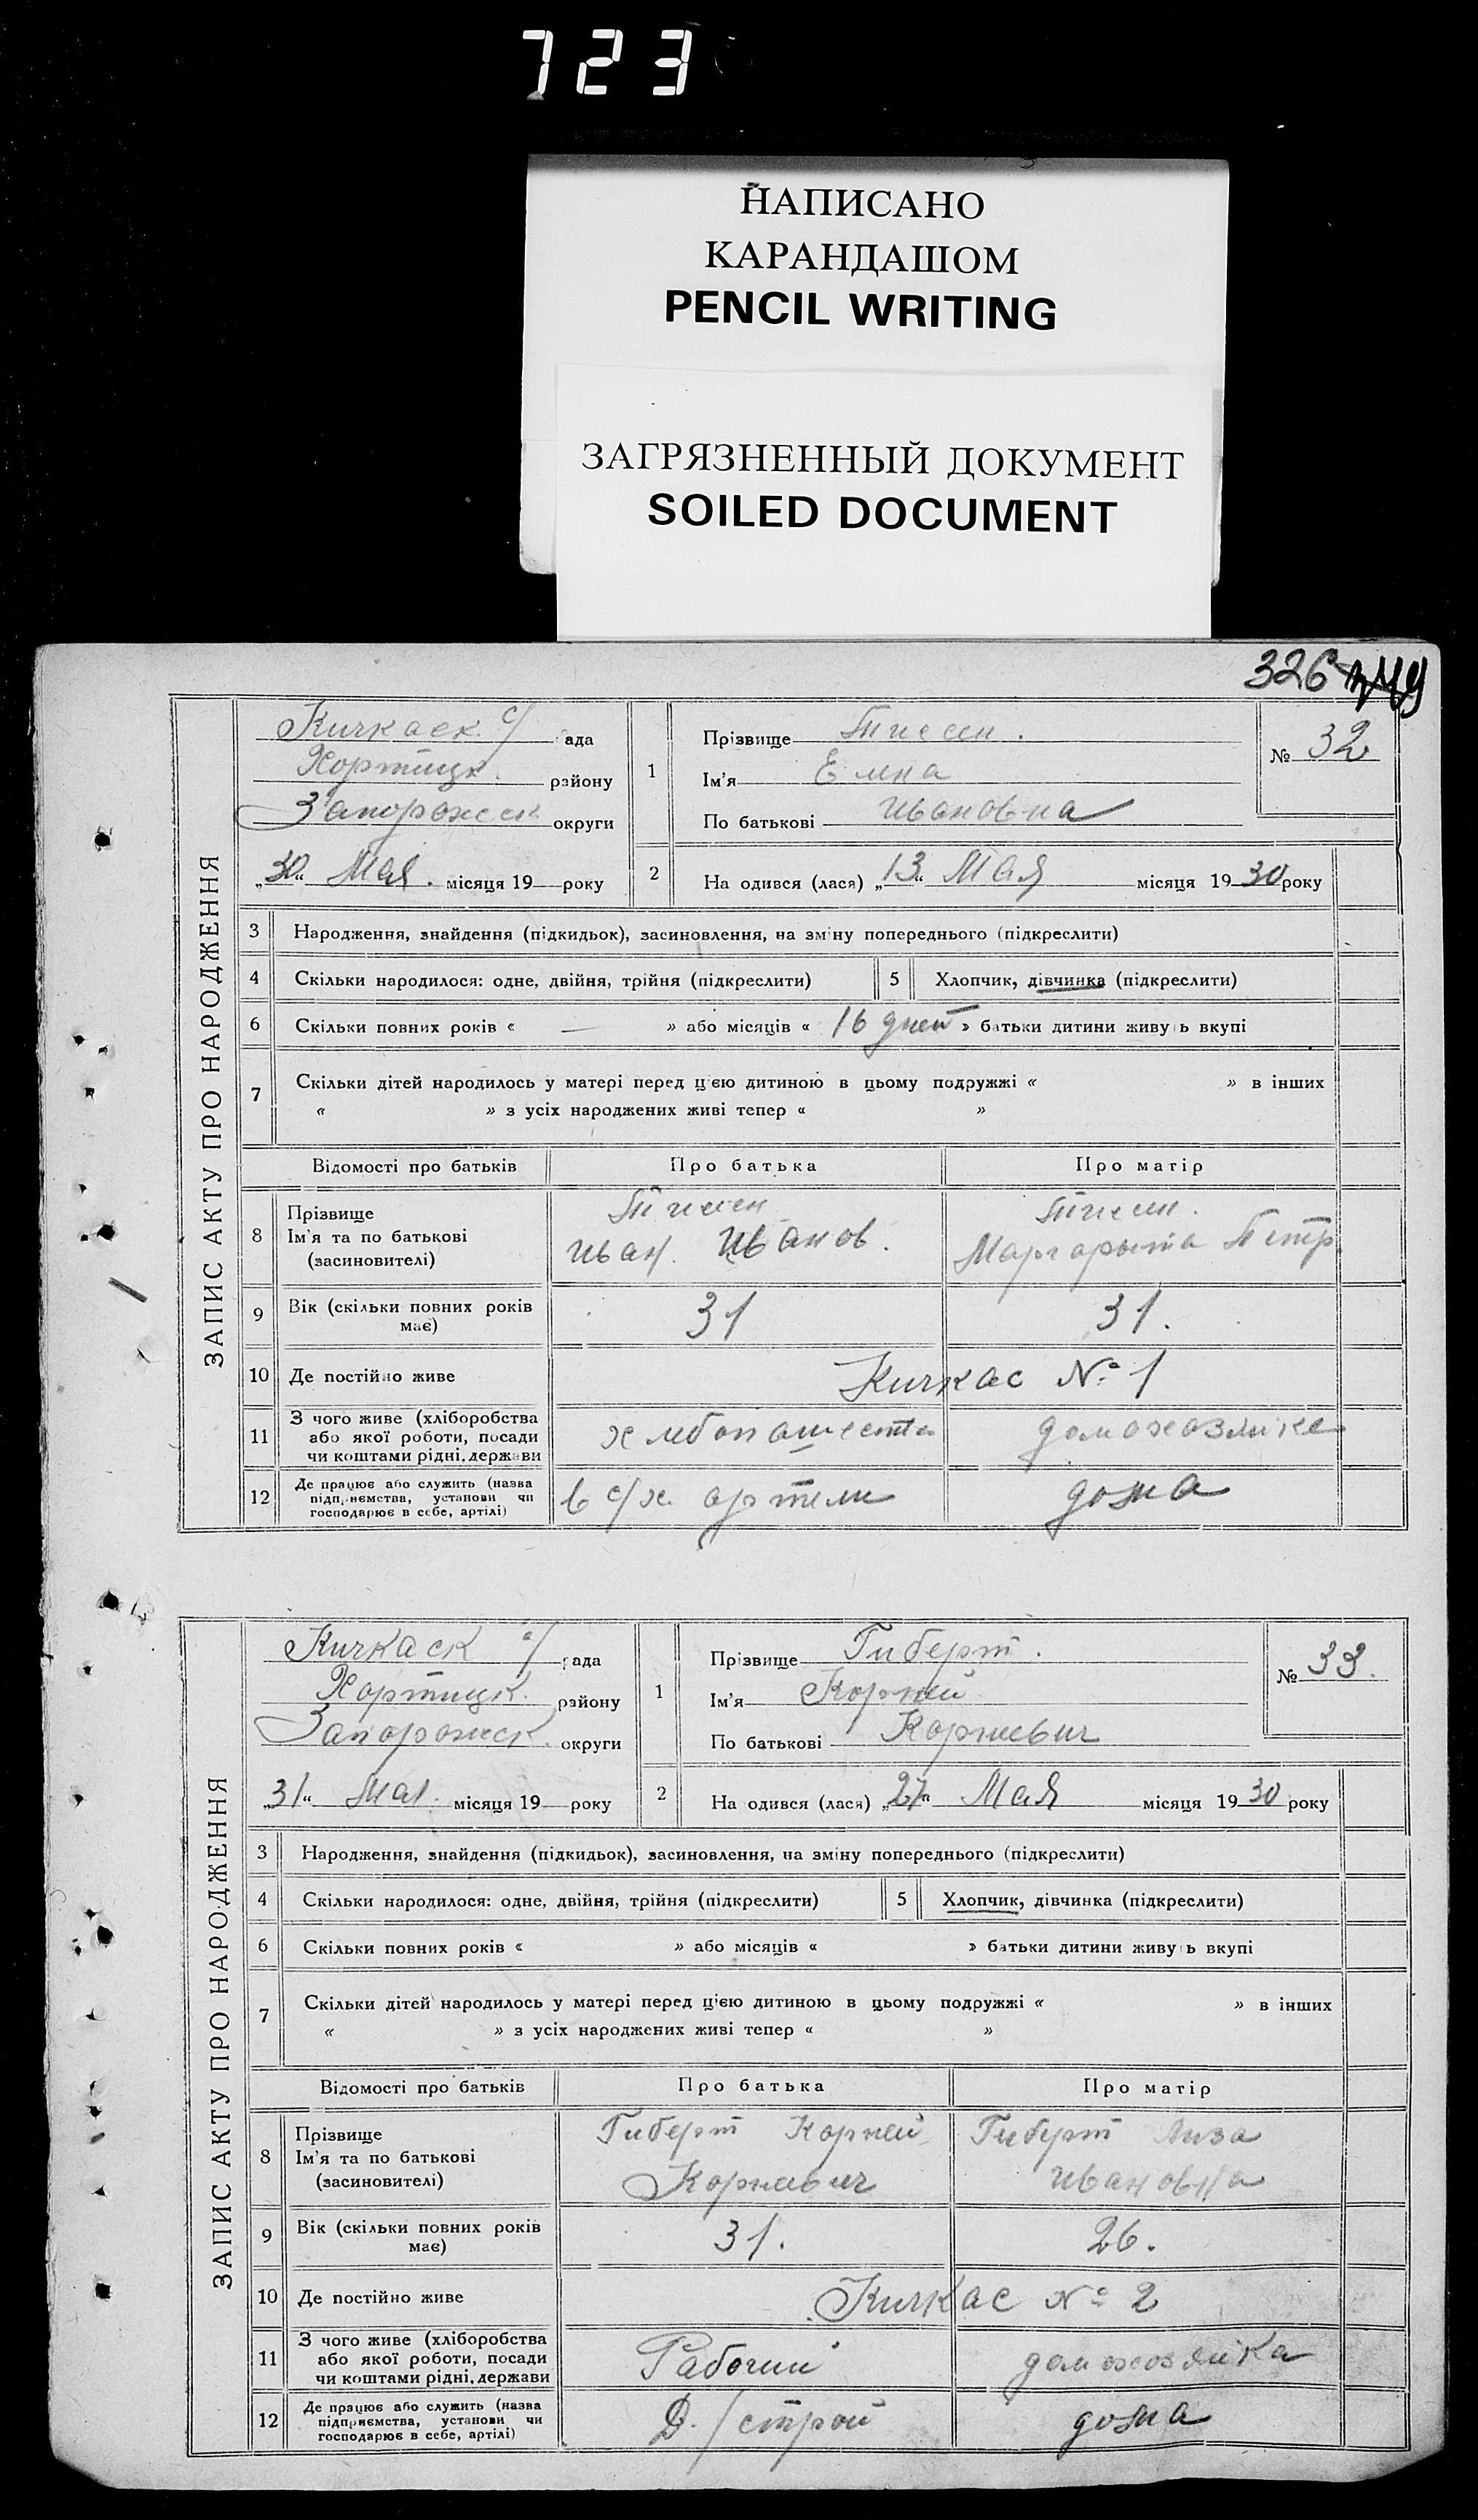 723
НАПИСАНО
КАРАНДАШОМ
PENCIL WRITING
ЗАГРЯЗНЕННЫЙ ДОКУМЕНТ
SOILED DOCUMENT
326
ЗАПИС АКТУ ПРО НАРОДЖЕННЯ
Кичкаск с/ рада
Хортицк. району
Запорожск округи
„30“ Мая. місяця 19 року
1 Прізвище Тиссен.
Ім'я Елна
По батькові Ивановна
№ 32
2 На одився (лася) „13“ Мая місяця 1930 року
3 Народження, знайдення (підкидьок), засиновлення, на зміну попереднього (підкреслити)
4 Скільки народилося: одне, двійня, трійня (підкреслити) 5 Хлопчик, дівчинка (підкреслити)
6 Скільки повних років « — » або місяців « 16 дней » батьки дитини живуть вкупі
7 Скільки дітей народилось у матері перед цією дитиною в цьому подружжі « » в інших
« » з усіх народжених живі тепер « »
Відомості про батьків Про батька Про матір
8 Прізвище Ім'я та по батькові (засновителі)
Тиссен Иван. Иванов.
Тиссен. Маргарыта Петр.
9 Вік (скільки повних років має) 31 31.
10 Де постійно живе Кичкас № 1
11 З чого живе (хліборобства або якої роботи, посади чи коштами рідні, держави
хлебопашество домохозяйка
12 Де працює або служить (назва підприємства, установи чи господарює в себе, артілі)
в с/х. артели дома
ЗАПИС АКТУ ПРО НАРОДЖЕННЯ
Кичкаск с/ рада
Хортицк. району
Запорожск. округи
„31“ Мая. місяця 19 року
1 Прізвище Гиберт.
Ім'я Корней
По батькові Корневич
№ 33.
2 На одився (лася) „27“ Мая місяця 1930 року
3 Народження, знайдення (підкидьок), засиновлення, на зміну попереднього (підкреслити)
4 Скільки народилося: одне, двійня, трійня (підкреслити) 5 Хлопчик, дівчинка (підкреслити)
6 Скільки повних років « » або місяців « » батьки дитини живуть вкупі
7 Скільки дітей народилось у матері перед цією дитиною в цьому подружжі « » в інших
« » з усіх народжених живі тепер « »
Відомості про батьків Про батька Про матір
8 Прізвище Ім'я та по батькові (засиновителі)
Гиберт Корней Корневич
Гиберт Лиза Ивановна
9 Вік (скільки повних років має) 31. 26.
10 Де постійно живе Кичкас № 2
11 З чого живе (хліборобства або якої роботи, посади чи коштами рідні, держави
Рабочий домохозяйка
12 Де працює або служить (назва підприємства, установи чи господарює в себе, артілі)
Д./строй дома